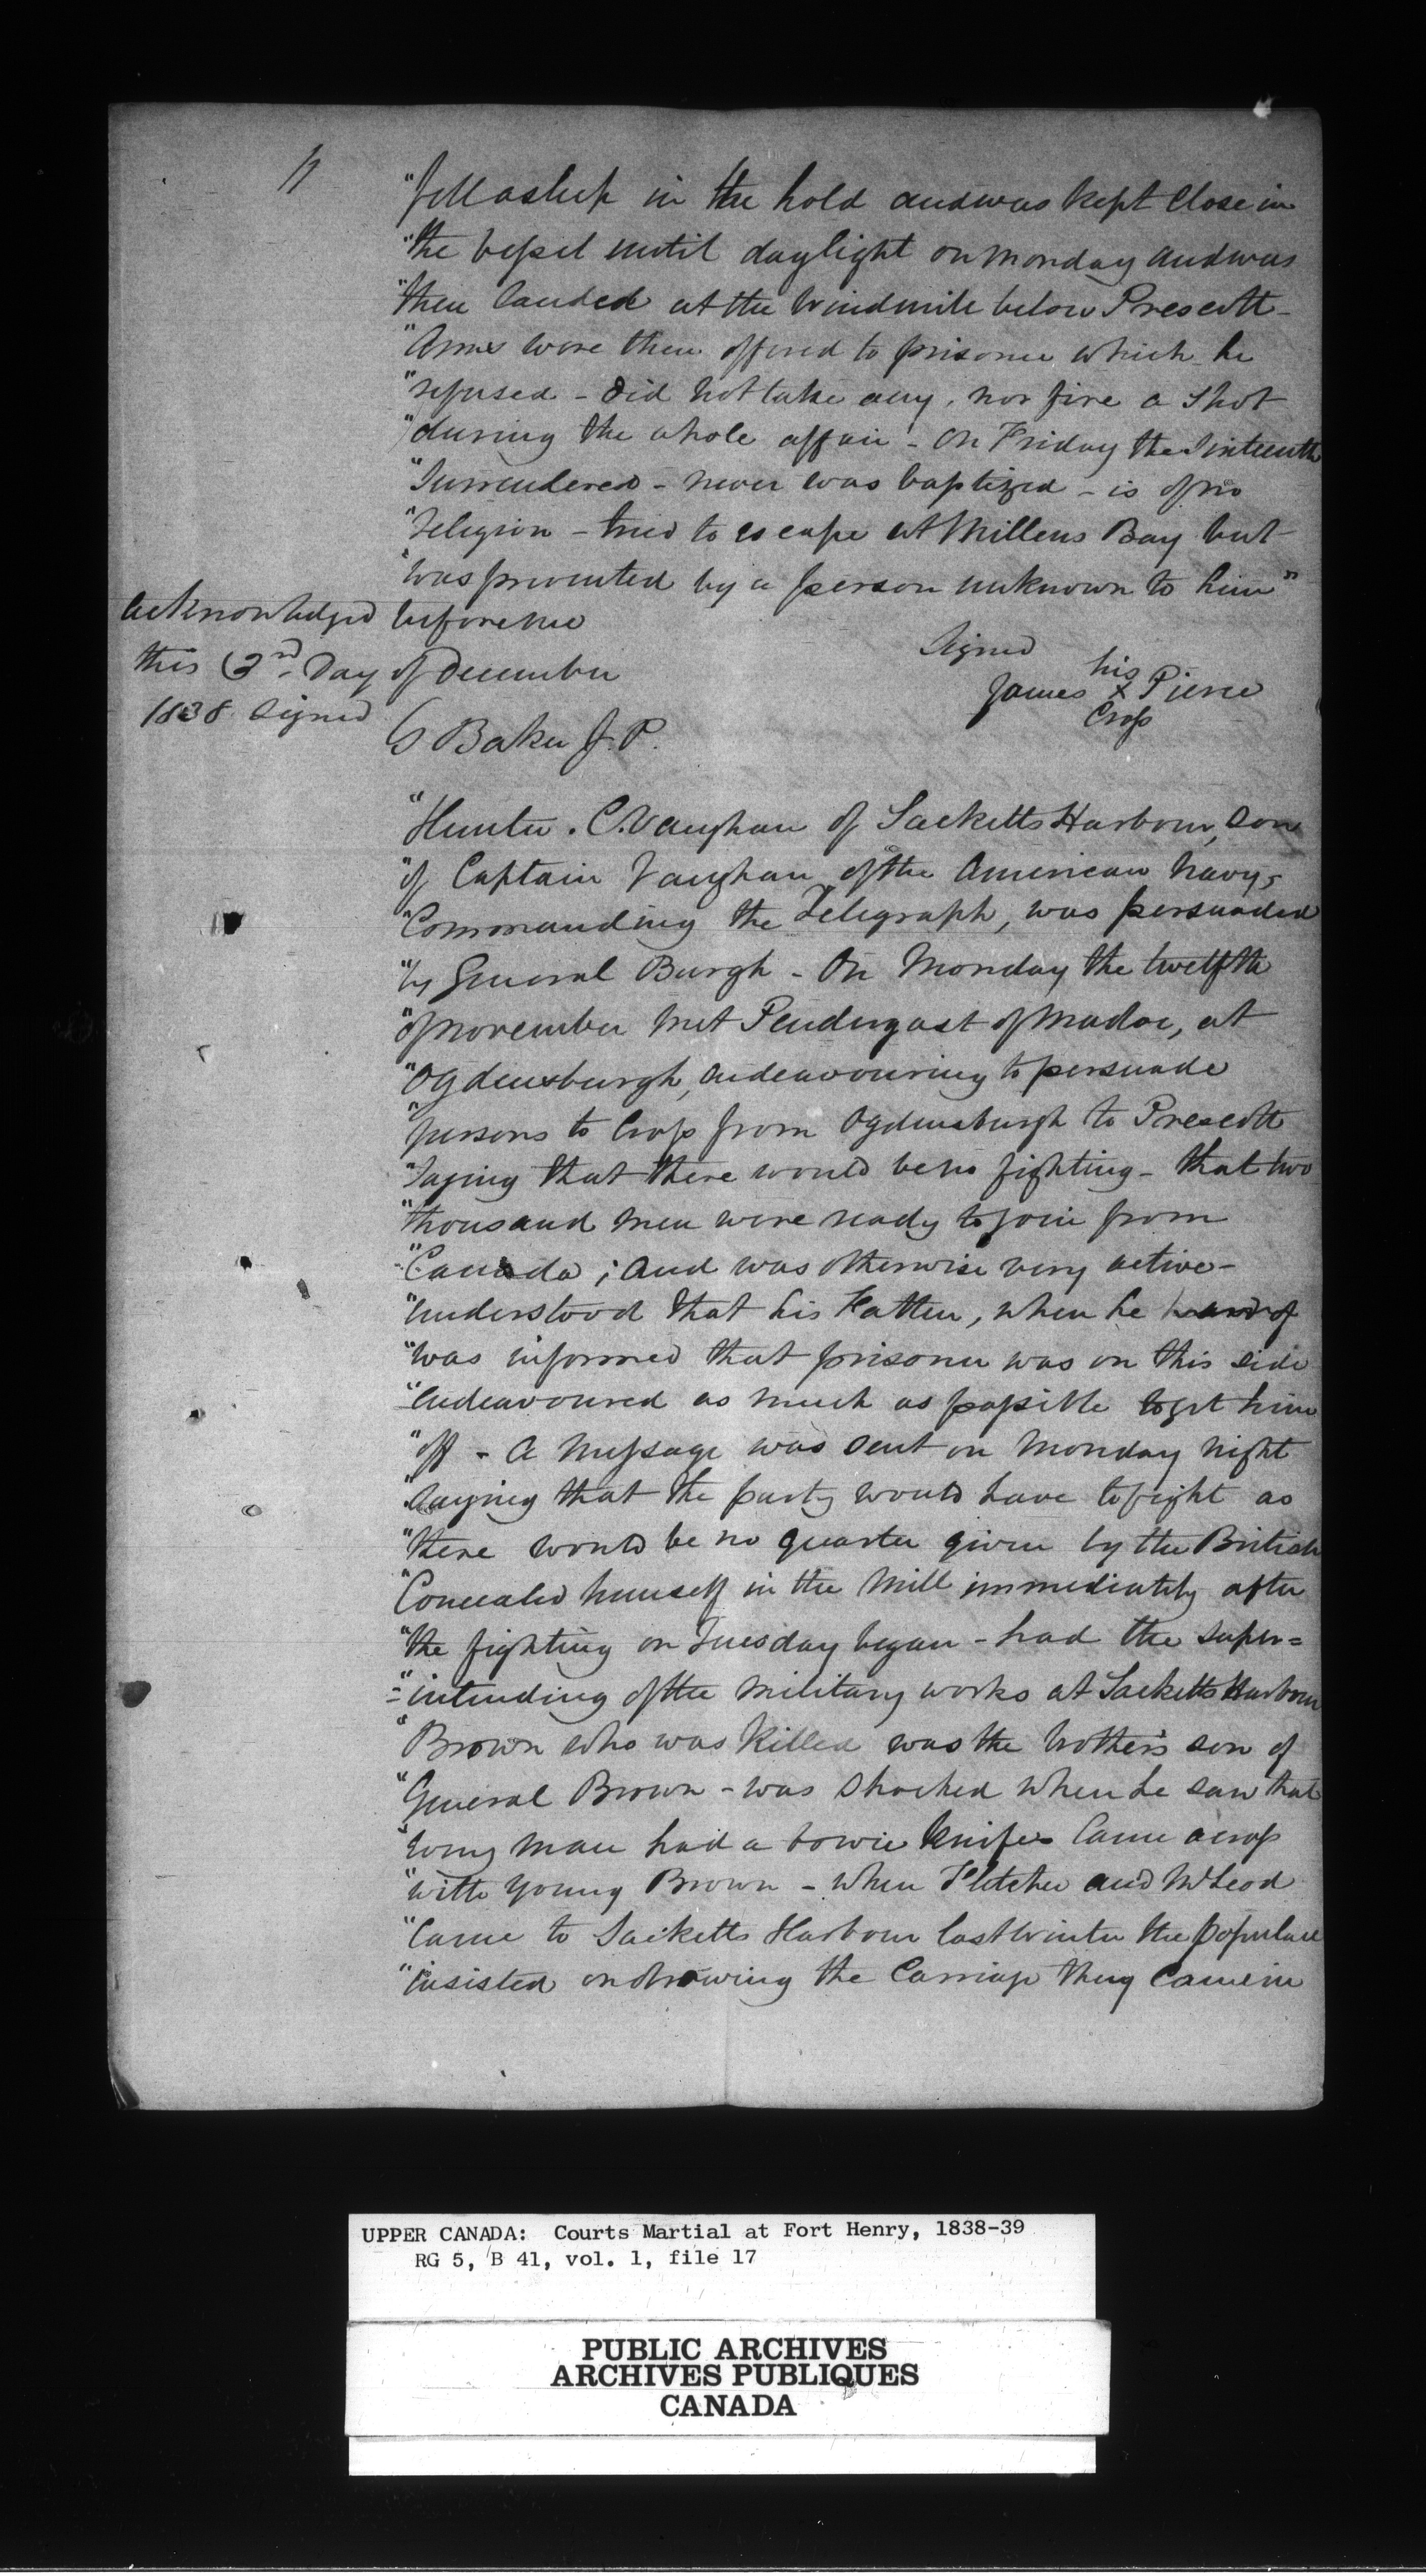 11
"fell asleep in the hold and was kept close in
"the vessel until daylight on Monday and was
"then landed at the Windmill below Prescott -
"Arms were then offered to prisoner which he
"refused - did not take any, nor fire a shot
"during the whole affair - On Friday the Sixteenth
"Surrendered - never was baptized - is of no
"religion - tried to escape at Millens Bay but
"was prevented by a person unknown to him"
Acknowledged before me
this 3rd Day of December
1838 Signed
G Baker J. P.
Signed
his
James x Pierce
Cross
"Hunter . C. Vaughan of Sacketts Harbour, son
"of Captain Vaughan of the American Navy,
"Commanding the Telegraph, was persuaded
"by General Burgh - On Monday the twelfth
"of November met Pendergast of Madoc, at
"Ogdensburgh, endeavouring to persuade
"persons to cross from Ogdensburgh to Prescott
"saying that there would be no fighting - that two
"thousand men were ready to join from
"Canada ; and was otherwise very active -
"understood that his Father, when he heard of
"was informed that prisoner was on this side
"endeavoured as much as possible to get him
"off - A message was sent on Monday night
"saying that the party would have to fight as
"there would be no quarter given by the British
"Concealed himself in the Mill immediately after
"the fighting on Tuesday began - had the super=
"=intending of the Military works at Sacketts Harbour
"Brown who was killed was the brother's son of
"General Brown - was shocked when he saw that
"every man had a bowie knife - Came across
"with young Brown - when Fletcher and McLeod
"Came to Sacketts Harbour last winter the populace
"insisted on drawing the Carriage they came in
UPPER CANADA: Courts Martial at Fort Henry, 1838-39
RG 5, B 41, vol. 1, file 17
PUBLIC ARCHIVES
ARCHIVES PUBLIQUES
CANADA